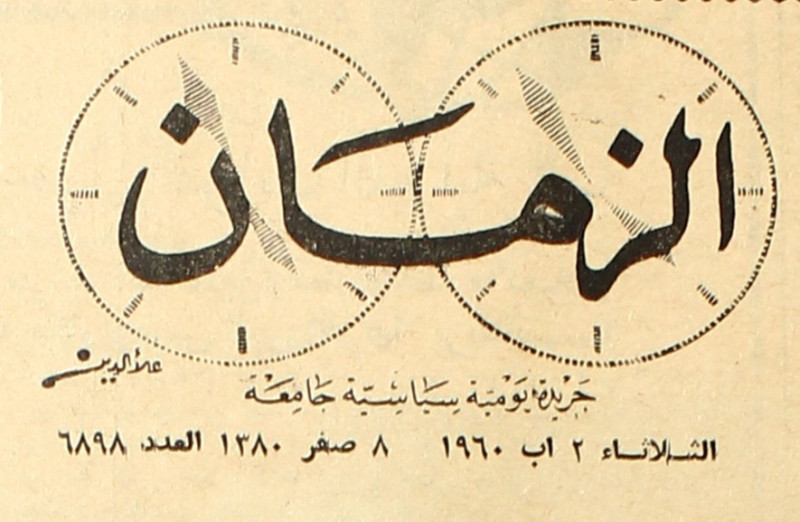 الزمان
علاءالدين
جريدة يومية سياسية جامعة
الثلاثاء ٢ اب ١٩٦٠ ٨ صفر ١٣٨٠ العدد ٦٨٩٨